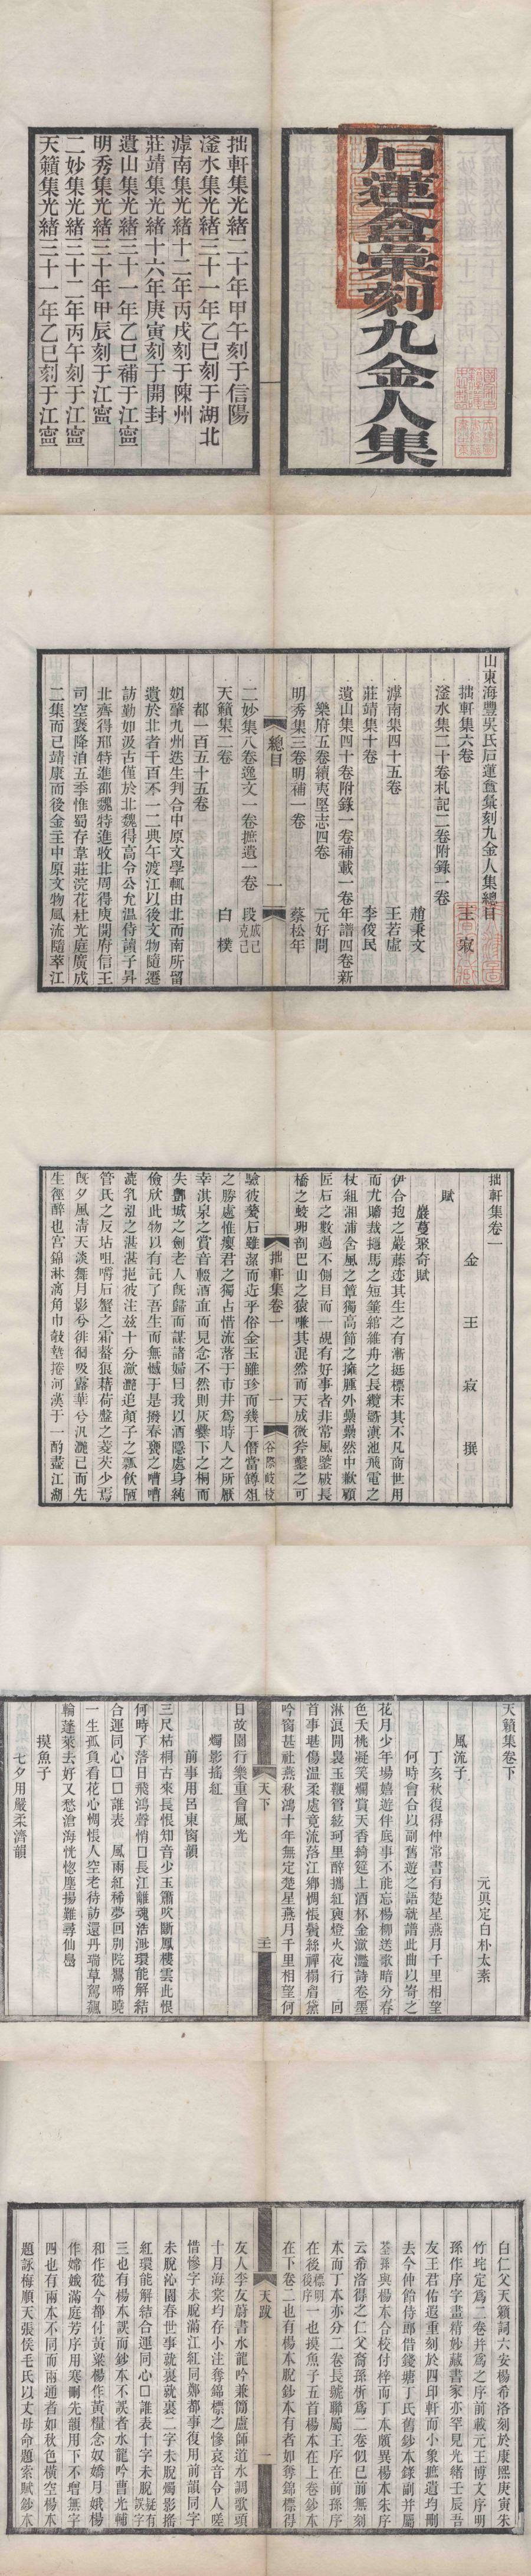 石蓮盦彙刻九金人集
拙軒集光緒二十年甲午刻于信陽
滏水集光緒三十一年乙巳刻于湖北
滹南集光緒十二年丙戌刻于陳州
莊靖集光緒十六年庚寅刻于開封
遺山集光緒三十一年乙巳補于江寧
明秀集光緒三十年甲辰刻于江寧
二妙集光緒三十二年丙午刻于江寧
天籟集光緒三十一年乙巳刻于江寧
山東海豐吳氏石蓮盦彙刻九金人集總目
拙軒集六卷 王寂
滏水集二十卷札記二卷附錄一卷
趙秉文
滹南集四十五卷 王若虛
莊靖集十卷 李俊民
遺山集四十卷附錄一卷補載一卷年譜四卷新
樂府五卷續夷堅志四卷 元好問
明秀集三卷明補一卷 蔡松年
總目 一
二妙集八卷逸文一卷摭遺一卷 段成己克己
天籟集二卷 白樸
都一百五十五卷
肇九州迭生判合中原文學輒由北而南所留
遺於北者千百不一二典午渡江以後文物隨遷
訪勤如汲古僅於北魏得高令公允溫侍讀子昇
北齊得邢特進邵魏特進收北周得庾開府信王
司空褒降洎五季惟蜀存韋莊浣花杜光庭廣成
二集而已靖康而後金主中原文物風流隨萃江
拙軒集卷一
金 王寂 撰
賦
巖蔓聚奇賦
伊合抱之巖藤迹其生之有漸挺標末其不凡商世用
而尤贍裁撾馬之短箠綰維舟之長纜斸滇池飛電之
杖組湘浦含風之簟獨高節之擁腫外纍纍然中歉顧
匠石之數過不側目而一覘有好事者非常風鑒破長
橋之蛟卵剖巴山之猿嗛其混然而天成微斧鑿之可
拙軒集卷一 一
驗彼甆石雖潔而近乎俗金玉雖珍而幾于僭當罇俎
之勝處惟癭君之獨占惜流落于市井爲時人之所厭
幸淇泉之賞音輟酒直而見念不然則灰爨下之桐而
失酆城之劍老人旣歸而謀諸婦曰我以酒隱處身純
儉欣此物以有託了吾生而無憾于是撥春甕之嘈嘈
漉乳泓之湛湛挹彼注茲十分瀲灩追顏子之瓢飲陋
管氏之反坫咀嚼后蟹之霜螯狼藉荷盤之菱芡少焉
旣夕風淸天淡舞月影兮徘徊吸露華兮汎灩已而先
生徑醉也宮錦淋漓角巾攲墊捲河漢于一酌蘸江湖
天籟集卷下
元眞定白朴太素
風流子
丁亥秋復得仲常書有楚星燕月千里相望
何時會合以副舊遊之語就譜此曲以寄之
花月少年場嬉遊伴底事不能忘楊柳送歌暗分春
色夭桃凝笑爛賞天香綺筵上酒杯金瀲灩詩卷墨
淋浪閒裊玉鞭管絃珂里醉攜紅袖燈火夜行 回
首事堪傷溫柔處竟流落江鄉惆悵鬢絲禪榻眉黛
吟窗甚社燕秋鴻十年無定楚星燕月千里相望何
天下
日故園行樂重會風光
燭影搖紅
前事用呂東窗韻
三尺枯桐古來長恨知音少玉簫吹斷鳳樓雲此恨
何時了落日飛鴻聲悄□長江離魂浩渺環能解結
合運同心□□誰表 風雨紅稀夢回別院鶯啼曉
一生孤負看花心惆悵人空老待訪還丹瑞草駕飆
輪蓬萊去好又愁滄海恍惚塵揚難尋仙島
摸魚子
七夕用嚴柔濟韻
白仁父天籟詞六安楊希洛刻於康熙庚寅朱
竹垞定爲二卷幷爲之序前載元王博文序明
孫作序字畫精妙藏書家亦罕見光緒壬辰吾
友王君佑遐重刻於四印軒而小象摭遺均刪
去今仲飴侍郎借錢塘丁氏舊鈔本錄副幷屬
荃孫與楊本合校付梓而丁本頗異楊本朱序
云希洛得之仁父裔孫析爲二卷似已前無刻
本而丁本亦分二卷長號聯屬王序在前孫序
在後標明後序一也摸魚子五首楊本在上卷鈔本
在下卷二也有楊本脫鈔本有者如奪錦標得
天跋 一
友人李友蔚書水龍吟兼簡盧師道水調歌頭
十月海棠均存小注奪錦標之慘哀音令人嗟
惜慘字未脫滿江紅同鄭都事復用前韻同字
未脫沁園春世事就裏就裏二字未脫燭影搖
紅環能解結合運同心□誰表十字未脫疑有誤字
三也有楊本誤而鈔本不誤者水龍吟曹光輔
和作從今都付黃粱楊作黃糧念奴嬌月娥楊
作嫦娥滿庭芳序用寒嗣先韻用下不增無字
四也有兩本不同而兩通者如秋色橫空楊本
題詠梅順天張侯毛氏以丈母命題索賦鈔本